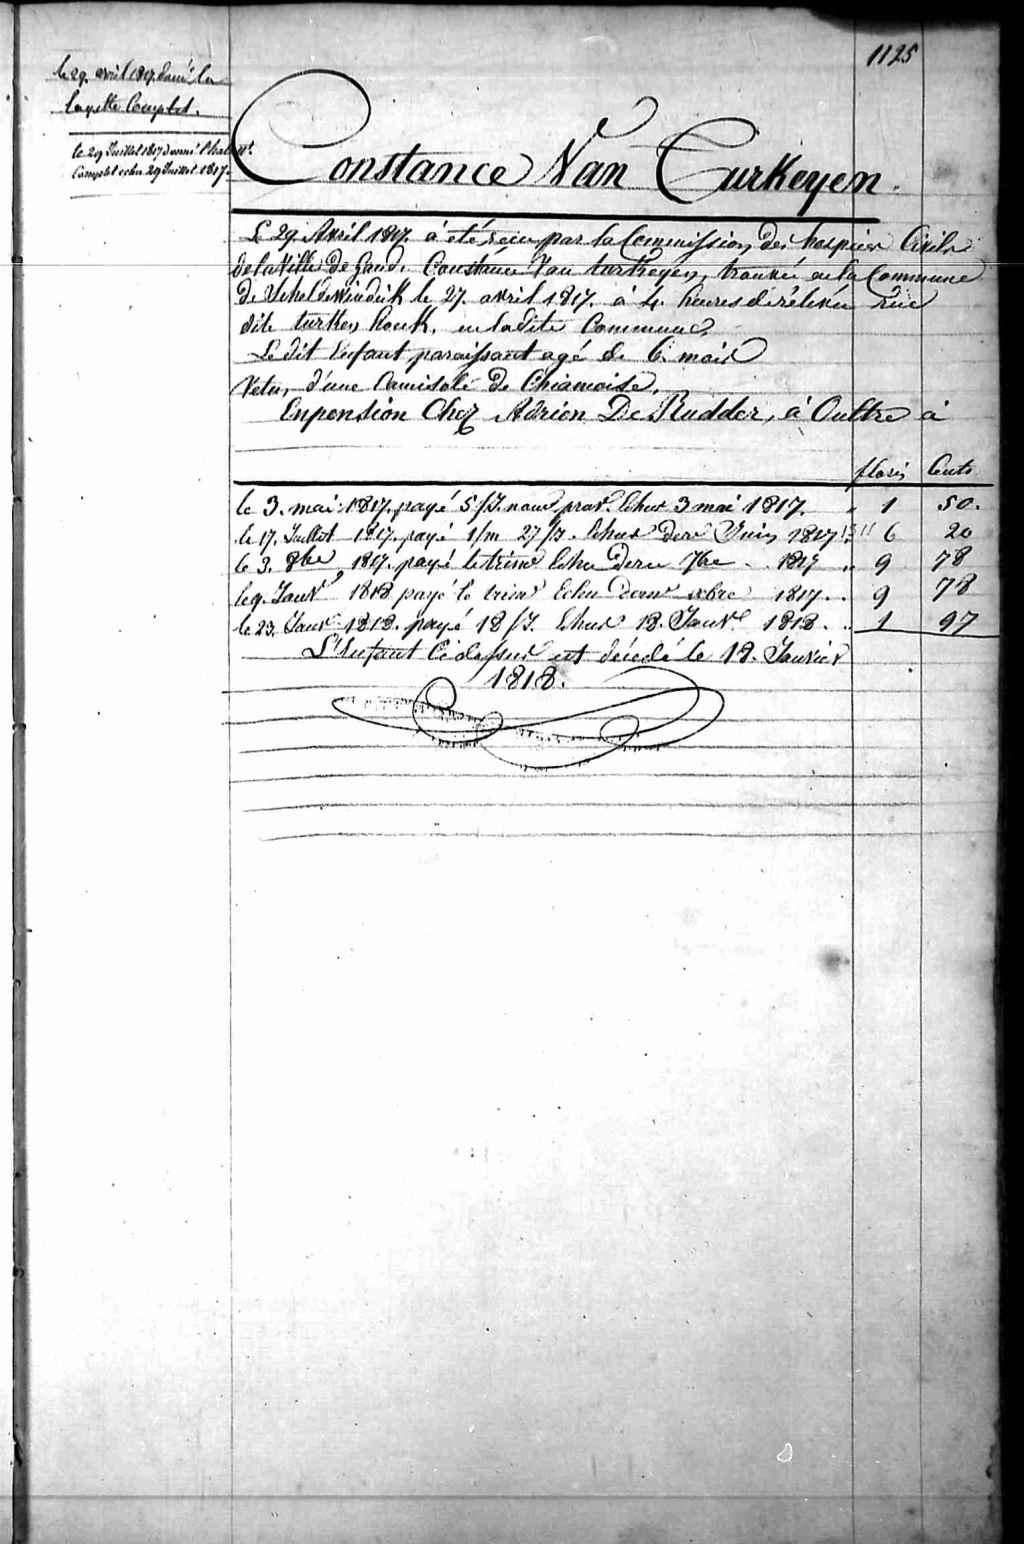 1125
le 29. avril 1817. donné la
layette Complet.
le 29 Juillet 1817 donné l'habillemt.
Complet echu 29 Juillet 1817.
Constance Van Turkeyen.
Le 29. Avril 1817. à été recu par la Commission des hospices Civils
de la Ville de Gand. Constance Van turkeyen, trouvée en la Commune
de Scheldewindeik le 27. avril 1817. à 4. heures de rélevée rue
dite turkey houk. en ladite Commune,
Le dit Enfant paraissant agé de 6. mois
Vetu, d'une Camisole de Chiamoise.
Enpension Chez Adrien De Rudder, à Oultre à
florins Cents
le 3. mai. 1817. payé 5/J. nour prov. Echus 3 mai 1817. " 1 50.
le 17. Juillet 1817. payé 1/m 27/J. Echus dere Juin 1817 " 6 20
le 3. 8bre 1817. payé le trime Echu dere 7bre 1817 " 9 78
le 9. Janvr 1818 payé le trime Echu dere xbre 1817. . 9 78
le 23. Janvr 1818. payé 18/J. Echus 18. Janvr 1818. . 1 97
L'Enfant Cidessus est décedé le 18. Janvier
1818.